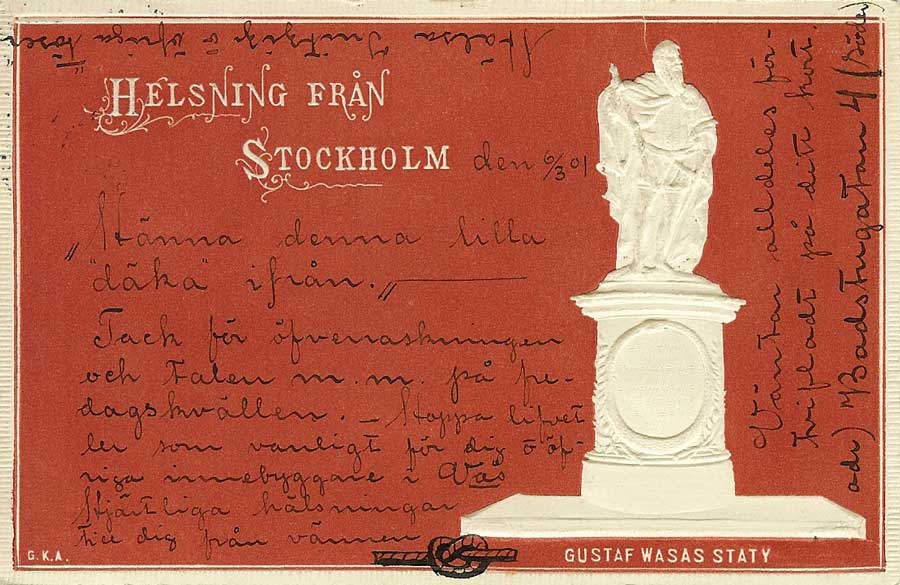 Hälsa Innitzig o öfriga töser
HELSNING FRÅN
STOCKHOLM
den 6/3 01
„Hänna denna lilla
"däka" ifrån.„
Tack för öfverraskningen
och talen m. m. på fre-
dagskvällen. – Hoppa lifvet
ler som vanligt för dig o öf-
riga innebyggare i Vås
Hjärtliga hälsningar
till dig från vännen
Väntar alldeles för-
tvifladt på ditt kort.
adr) Badstugatan 4 (Söder)
G.K.A.
GUSTAF WASAS STATY